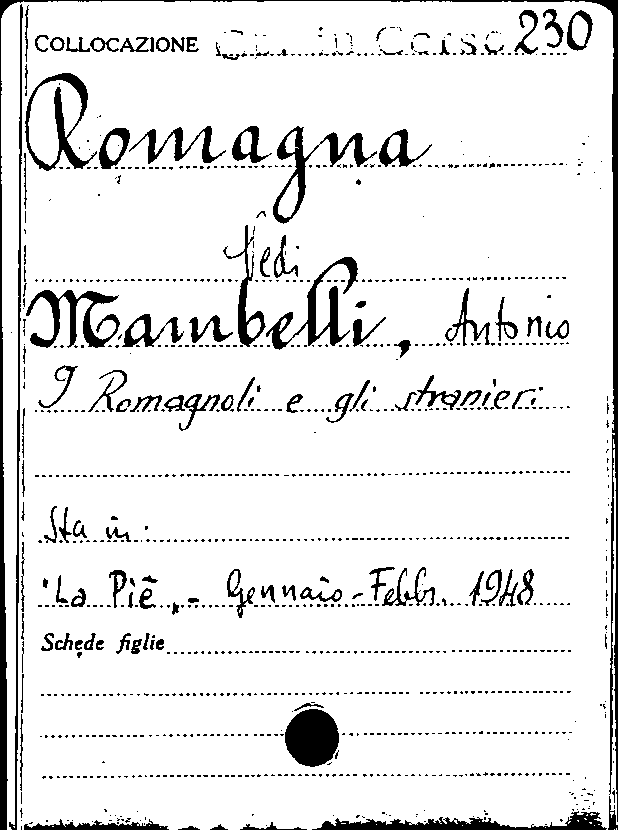 COLLOCAZIONE Gr. in Corso 230
Romagna
Vedi
Mambelli, Antonio
I Romagnoli e gli stranieri
Sta in:
"La Piê„- Gennaio-Febbr. 1948
Schede figlie